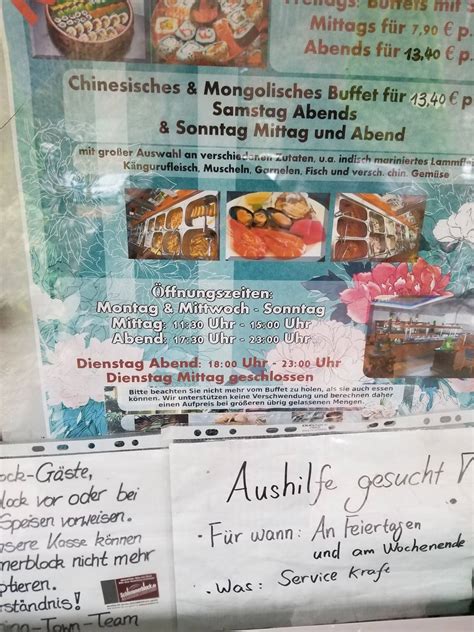 Freitags: Buffets mit
Mittags für 7,90 € p.
Abends für 13,40 € p.
Chinesisches & Mongolisches Buffet für 13,40 € p
Samstag Abends
& Sonntag Mittag und Abend
mit großer Auswahl an verschiedenen Zutaten, u.a. indisch mariniertes Lammfle
Kängurufleisch, Muscheln, Garnelen, Fisch und versch. chin. Gemüse
Öffnungszeiten:
Montag & Mittwoch - Sonntag
Mittag: 11:30 Uhr - 15:00 Uhr
Abend: 17:30 Uhr - 23:00 Uhr
Dienstag Abend: 18:00 Uhr - 23:00 Uhr
Dienstag Mittag geschlossen
Bitte beachten Sie nicht mehr vom Buffet zu holen, als sie auch essen
können. Wir unterstützen keine Verschwendung und berechnen daher
einen Aufpreis bei größeren übrig gelassenen Mengen.
ock-Gäste,
lock vor oder bei
Speisen vorweisen.
nsere Kasse können
merblock nicht mehr
ptieren.
rständnis!
-Town-Team
Aushilfe gesucht!
· Für wann: An Feiertagen
und am Wochenende
· Was: Service Kraft